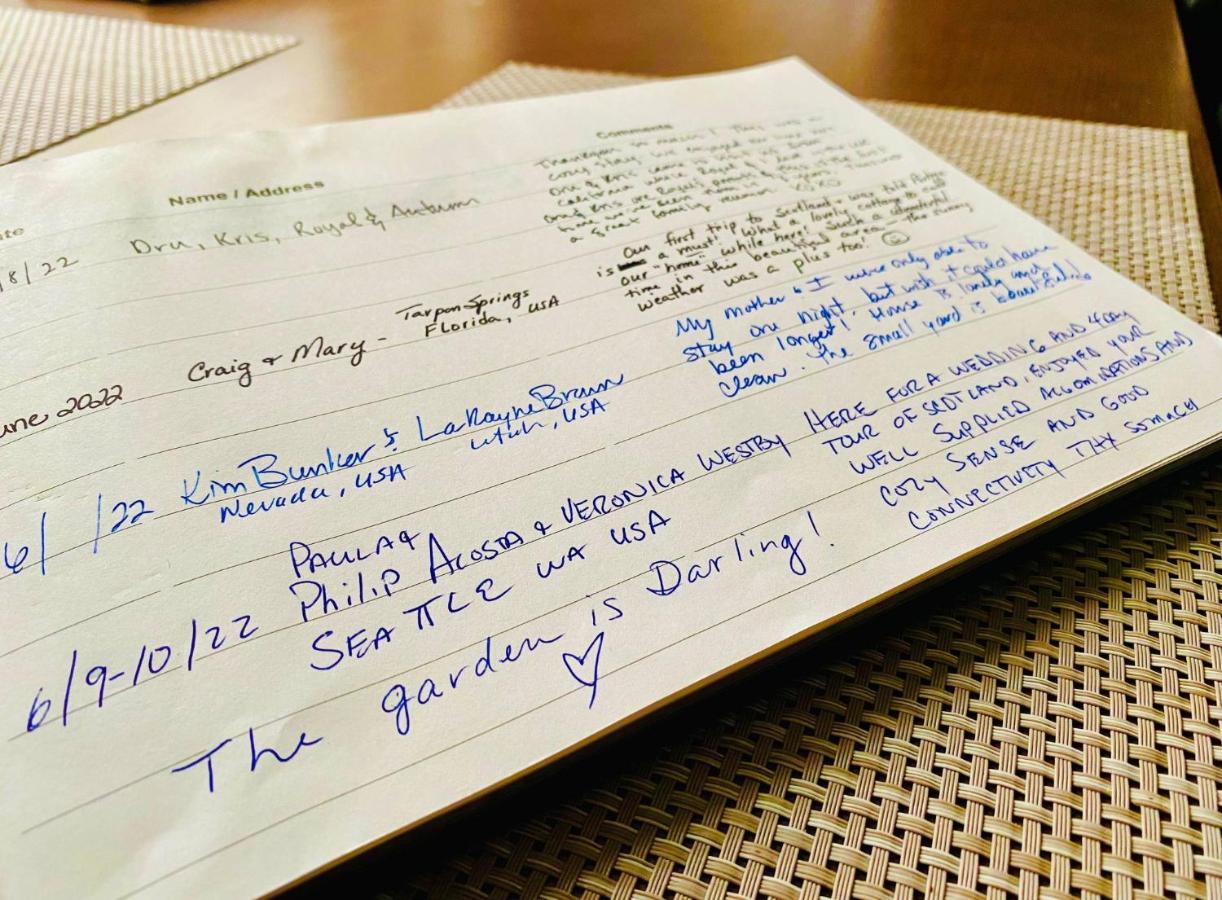 Name / Address
Comments
/8/22
Dru, Kris, Royal & Autum
Thankyou so much! This was a
cozy stay. We enjoyed
California where Royal &
a great family reunion XOXO
une 2022
Craig & Mary - Tarpon Springs
Florida, USA
Our first trip to Scotland &
is a must! What a lovely cottage to call
our "home" while here! Such a wonderful
time in this beautiful area - the sunny
weather was a plus too!
6/ /22
Kim Bunker & LaRayne Braun
Nevada, USA
Utah, USA
My mother & I were only able to
stay one night, but wish it could have
been longer! House is lovely and
clean. The small yard is beautiful.
6/9-10/22
PAULA &
Philip ACOSTA & VERONICA WESTBY
SEATTLE WA USA
HERE FOR A WEDDING AND
TOUR OF SCOTLAND, ENJOYED YOUR
WELL SUPPLIED ACCOMINATIONS AND
COZY SENSE AND GOOD
CONNECTIVITY THX SOMACH
The garden is Darling!